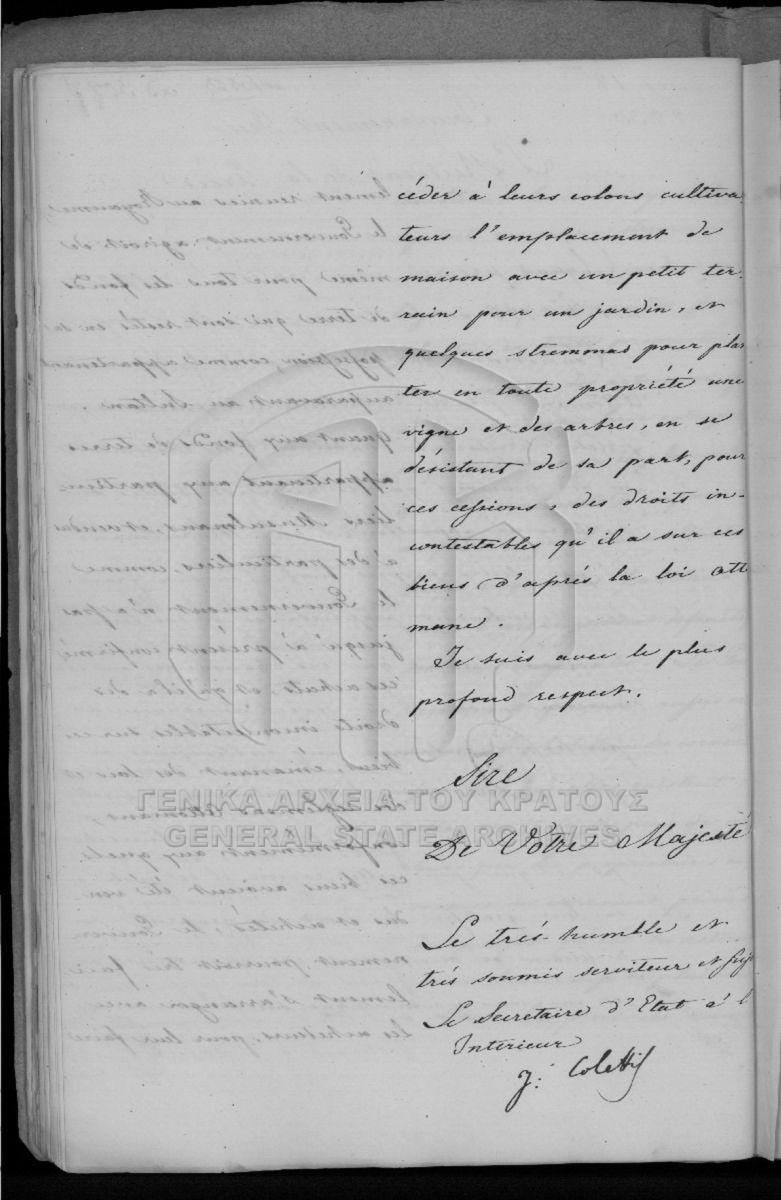 céder à leurs colons cultiva
teurs l'emplacement de
maison avec un petit ter-
rain pour un jardin, et
quelques stremmas pour plan
ter en toute propriété une
vigne et des arbres, en se
désistant de sa part, pour
ces cessions, des droits in-
contestables qu'il a sur ces
biens d'après la loi Ott
mane.
Je suis avec le plus
profond respect.
Sire
ΓΕΝΙΚΑ ΑΡΧΕΙΑ ΤΟΥ ΚΡΑΤΟΥΣ
GENERAL STATE ARCHIVES
De Votre Majesté
Le très-humble et
très soumis serviteur et
Le Secretaire d'Etat à l
Intérieur
J: Colettis